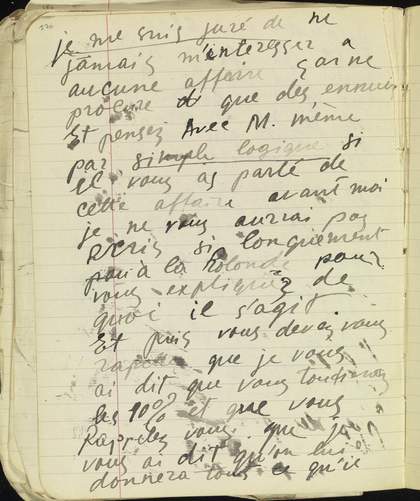 je me suis juré de ne
jamais m'interesser a
aucune affaire ça ne
procure que des ennuis
Et pensez Avec M. même
par simple logique si
il vous as parlé de
cette affaire avant moi
je ne vous aurai pas
écris si longuement
à la Rotonde pour
vous expliquer de
quoi il s'agit.
Et puis vous devez vous
rappeler que je vous
ai dit que vous
les 10% et que vous
Rappelez vous que je
vous ai dit qu'on lui
donnera tout ce qu'il